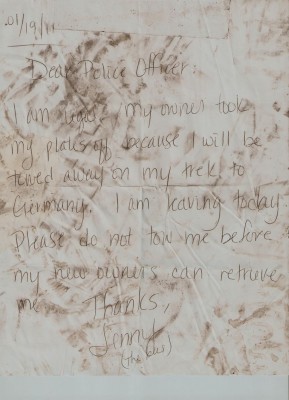 01/19/11
Dear Police Officer:
I am legal, my owner took
my plates off because I will be
towed away on my trek to
Germany. I am leaving today
Please do not tow me before
my new owners can retrieve
me. Thanks,
Jenny
(the car)